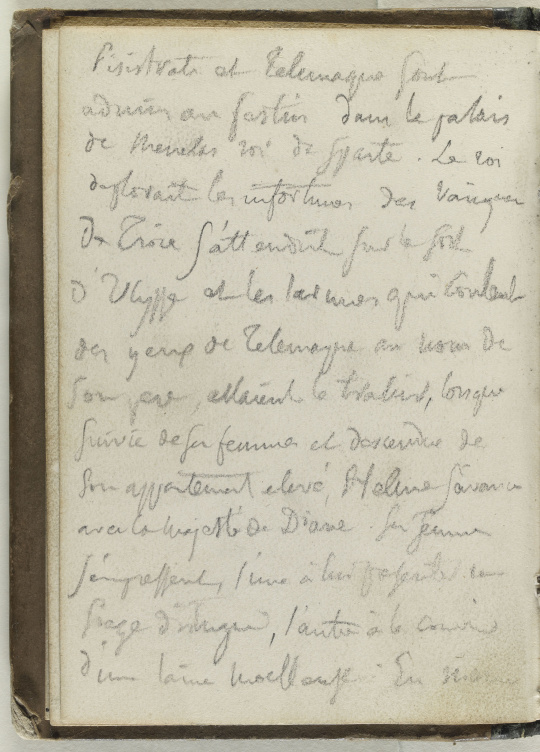 Pisistrate et Telemaque sont
admis au festin dans le palais
de Menelas roi de Sparte. Le roi
deplorait les infortunes des vainqueurs
De Troie s'attendrit sur le sort
d'Ulysse et les larmes qui coulent
des yeux de Telemaque au nom de
son pere, allaient le trahir, lorsque
suivie de ses femmes et descendue de
son appartement elevé, Helene s'avance
avec la majesté de Diane. Ses femmes
s'empressent, l'une à lui presenter un
siege, l'autre à le couvrir
d'une laine moelleuse. En